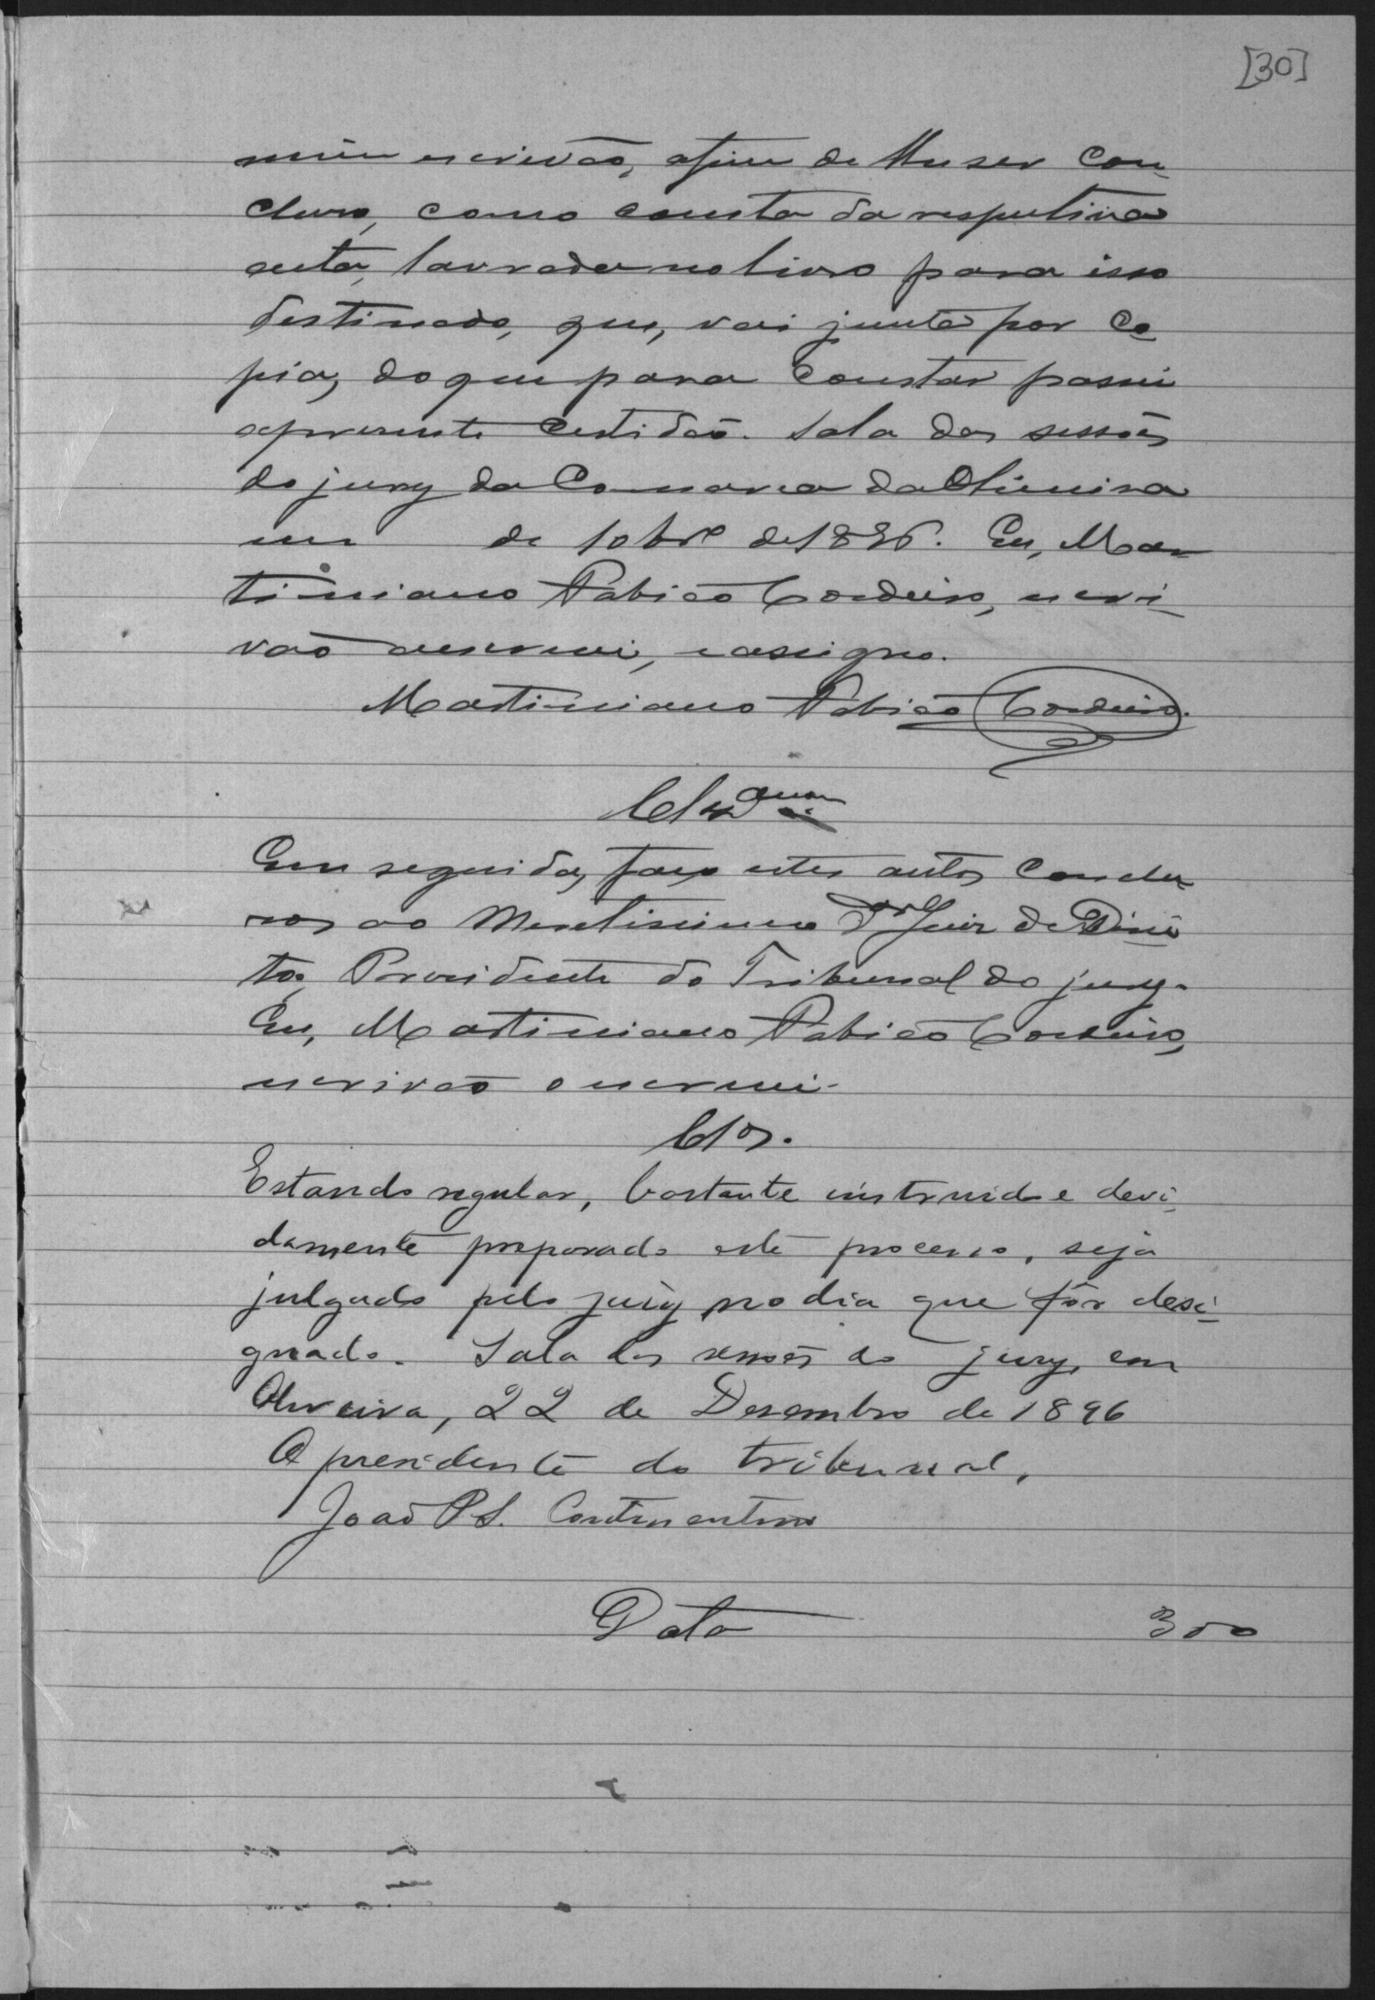 [30]
mim escrivão, afim de lhe ser con-
cluso, como consta da respectiva
acta, lavrada no livro para isso
destinado, que, vai junta por co-
pia, do que para constar passei
apresente certidão. Sala das sessões
do jury da Comarca da Oliveira
em de 10brº de 1896. Eu, Mar-
timiano Fabião Cordeiro, escri-
vão escrevi, e assigno.
Martimiano Fabião Cordeiro.
Em seguida, faço estes autos conclu-
sos ao Meretissimo Dor Juiz de Direi
to, Presidente do Tribunal do jury.
Eu, Martimiano Fabião Cordeiro,
escrivão o escrevi.
Clos.
Estando regular, bastante instruido e devi-
damente preparado este processo, seja
julgado pelo jury no dia que fôr desi-
gnado. Sala das sessões do jury, em
Oliveira, 22 de Dezembro de 1896
O presidente do tribunal,
João P. S. Continentino
Data 300